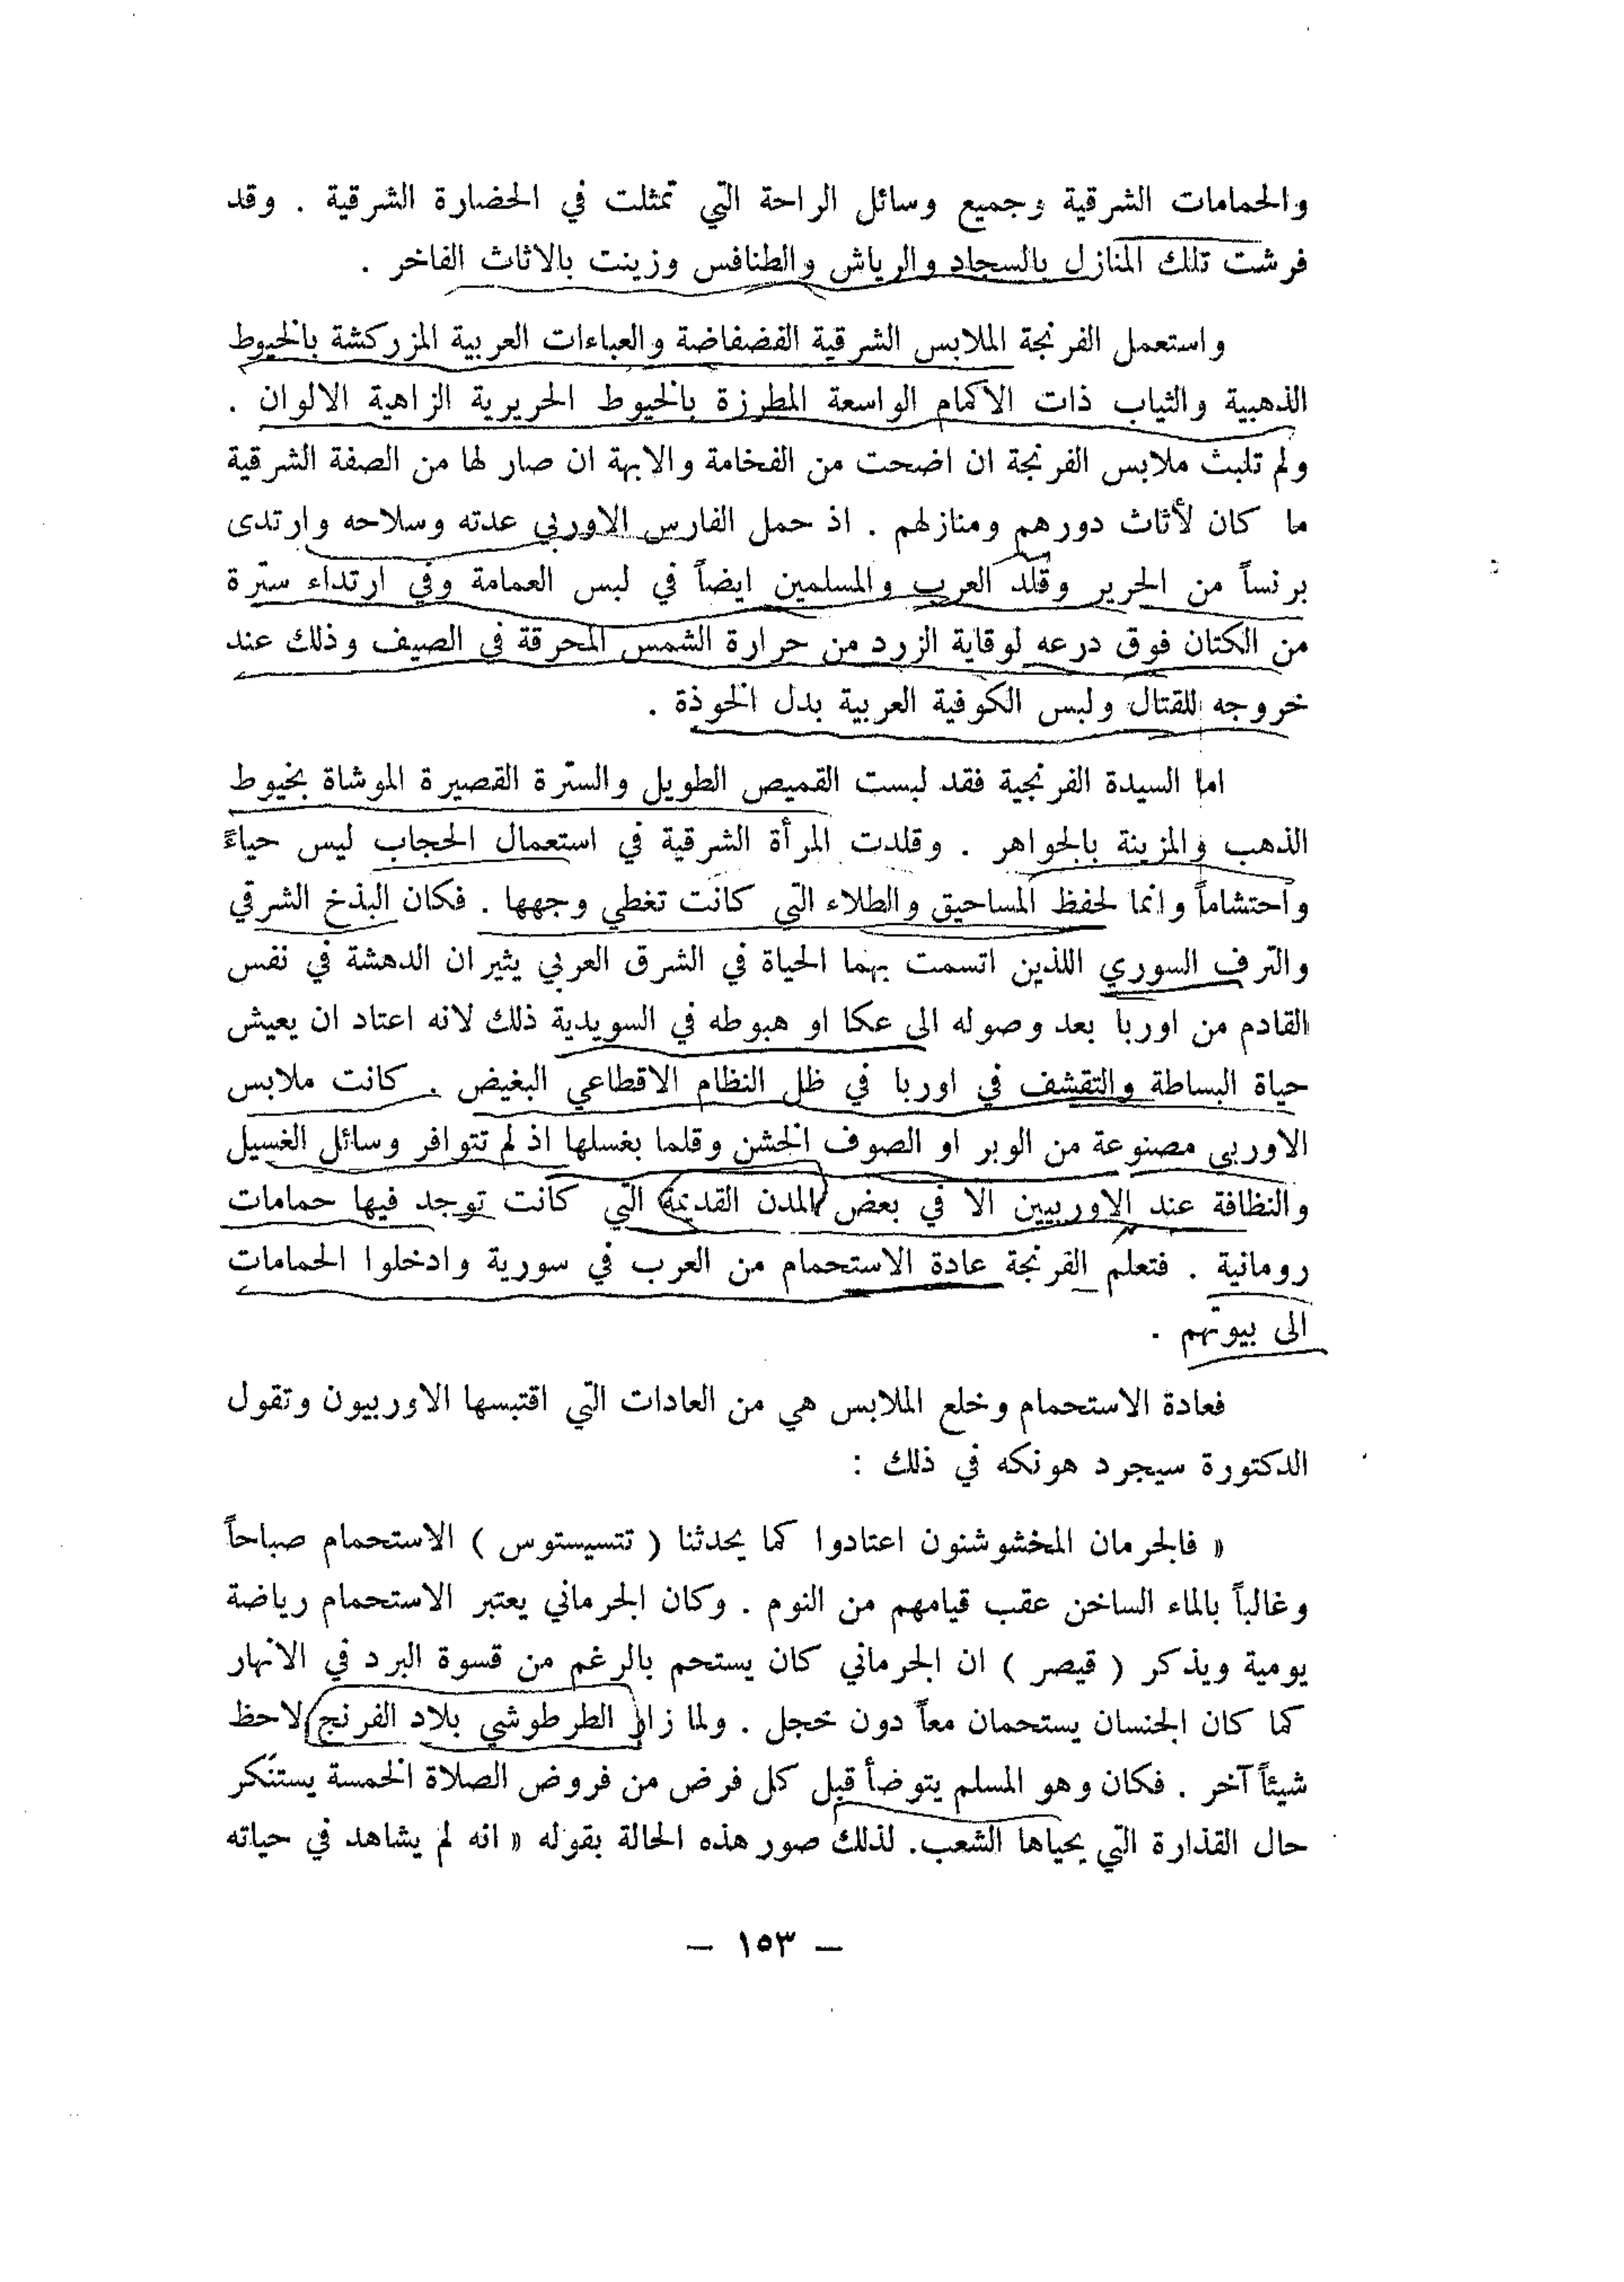 والحمامات الشرقية وجميع وسائل الراحة التي تمثلت في الحضارة الشرقية . وقد
فرشت تلك المنازل بالسجاد والرياش والطنافس وزينت بالاثاث الفاخر .
واستعمل الفرنجة الملابس الشرقية الفضفاضة والعباءات العربية المزركشة بالخيوط
الذهبية والثياب ذات الاكمام الواسعة المطرزة بالخيوط الحريرية الزاهية الالوان .
ولم تلبث ملابس الفرنجة ان اضحت من الفخامة والابهة ان صار لها من الصفة الشرقية
ما كان لأثاث دورهم ومنازلهم . اذ حمل الفارس الاوربي عدته وسلاحه وارتدى
برنساً من الحرير وقلد العرب والمسلمين ايضاً في لبس العمامة وفي ارتداء سترة
من الكتان فوق درعه لوقاية الزرد من حرارة الشمس المحرقة في الصيف وذلك عند
خروجه للقتال ولبس الكوفية العربية بدل الخوذة .
اما السيدة الفرنجية فقد لبست القميص الطويل والسترة القصيرة الموشاة بخيوط
الذهب والمزينة بالجواهر . وقلدت المرأة الشرقية في استعمال الحجاب ليس حياءً
واحتشاماً وانما لحفظ المساحيق والطلاء التي كانت تغطي وجهها . فكان البذخ الشرقي
والترف السوري اللذين اتسمت بهما الحياة في الشرق العربي يثيران الدهشة في نفس
القادم من اوربا بعد وصوله الى عكا او هبوطه في السويدية ذلك لانه اعتاد ان يعيش
حياة البساطة والتقشف في اوربا في ظل النظام الاقطاعي البغيض . كانت ملابس
الاوربي مصنوعة من الوبر او الصوف الخشن وقلما بغسلها اذ لم تتوافر وسائل الغسيل
والنظافة عند الاوربيين الا في بعض المدن القديمة التي كانت توجد فيها حمامات
رومانية . فتعلم الفرنجة عادة الاستحمام من العرب في سورية وادخلوا الحمامات
الى بيوتهم .
فعادة الاستحمام وخلع الملابس هي من العادات التي اقتبسها الاوربيون وتقول
الدكتورة سيجرد هونكه في ذلك :
« فالجرمان المخشوشنون اعتادوا كما يحدثنا ( تتسيستوس ) الاستحمام صباحاً
وغالباً بالماء الساخن عقب قيامهم من النوم . وكان الجرماني يعتبر الاستحمام رياضة
يومية ويذكر ( قيصر ) ان الجرماني كان يستحم بالرغم من قسوة البرد في الانهار
كما كان الجنسان يستحمان معاً دون خجل . ولما زار الطرطوشي بلاد الفرنج لاحظ
شيئاً آخر . فكان وهو المسلم يتوضأ قبل كل فرض من فروض الصلاة الخمسة يستنكر
حال القذارة التي يحياها الشعب. لذلك صور هذه الحالة بقوله « انه لم يشاهد في حياته
– ١٥٣ –